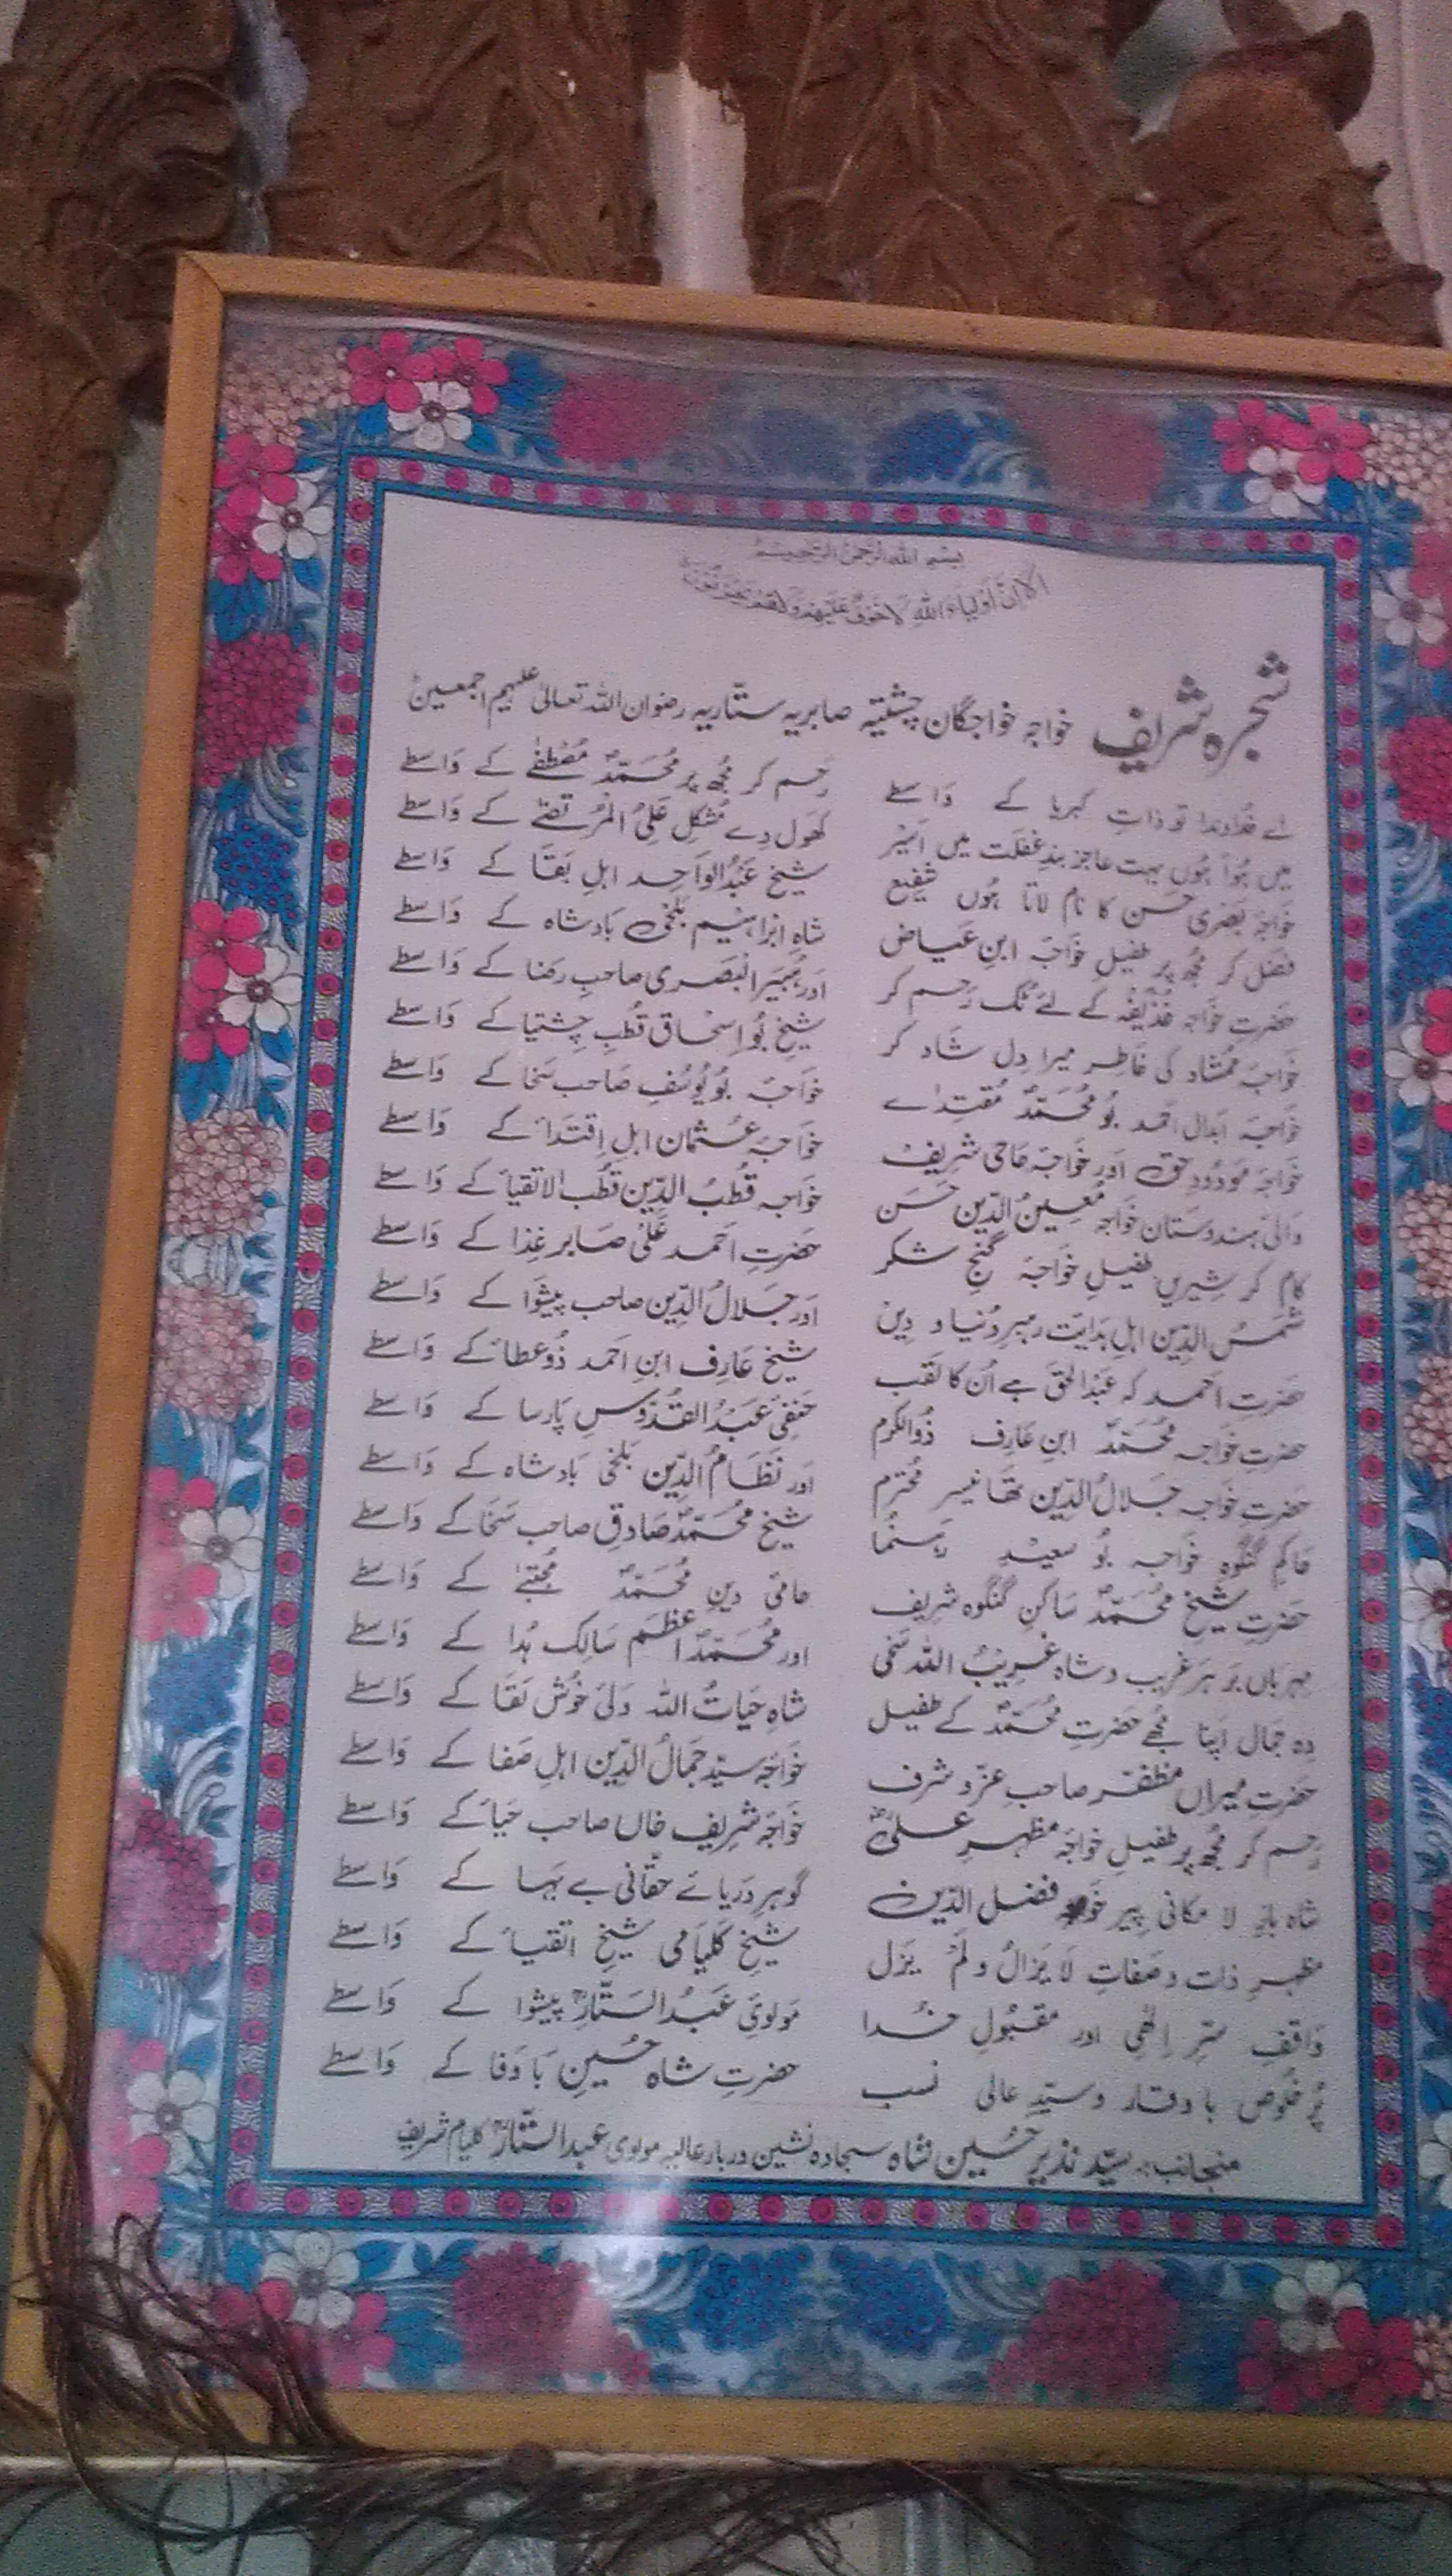 بسم الله الرحمن الرحيم
الا ان اولياء الله لا خوف عليهم ولا هم يحزنون
شجرہ شریف خواجہ خواجگان چشتیہ صابریہ ستاریہ رضوان اللہ تعالیٰ علیہم اجمعین
اے خداوندا تو ذاتِ کبریا کے واسطے رحم کر مجھ پر محمدؐ مصطفٰے کے واسطے
میں ہوا ہوں بہت عاجز بندِ غفلت میں اسیر کھول دے مشکل علیؓ المرتضٰے کے واسطے
خواجہ بصری حسن کا نام لاتا ہوں شفیع شیخ عبدالواحد اہلِ بقا کے واسطے
فضل کر مجھ پر طفیلِ خواجہ ابنِ عیاض شاہ ابراہیم بلخی بادشاہ کے واسطے
حضرتِ خواجہ حذیفہ کے لئے ٹک رحم کر اور ہبیر البصری صاحبِ رضا کے واسطے
خواجہ ممشاد کی خاطر میرا دل شاد کر شیخ بو اسحاق قطبِ چشتیا کے واسطے
خواجہ ابدال احمد بو محمدؐ مقتدائے خواجہ بو یوسف صاحب سخا کے واسطے
خواجہ مودود حق اور خواجہ حاجی شریف خواجہ عثمان اہلِ اقتداء کے واسطے
والیٔ ہندوستان خواجہ معین الدین حسن خواجہ قطب الدین قطب الاتقیاء کے واسطے
کام کر شیریں طفیلِ خواجہ گنجِ شکر حضرتِ احمد علی صابر غذا کے واسطے
شمس الدین اہلِ ہدایت رہبرِ دنیا و دیں اور جلال الدین صاحب پیشوا کے واسطے
حضرتِ احمد کہ عبدالحق ہے ان کا لقب شیخ عارف ابنِ احمد ذوعطاء کے واسطے
حضرتِ خواجہ محمدؐ ابنِ عارف ذوالکرم حنفی عبدالقدوس پارسا کے واسطے
حضرتِ خواجہ جلال الدین تھانیسر محترم اور نظام الدین بلخی بادشاہ کے واسطے
حاکمِ گنگوہ خواجہ بو سعید رہنما شیخ محمدؐ صادق صاحب سخا کے واسطے
حضرتِ شیخ محمدؐ ساکنِ گنگوہ شریف حامیٔ دینِ محمدؐ مجتبےٰ کے واسطے
مہرباں بر ہر غریب و شاہ غریب اللہ سخی اور محمدؐ اعظم سالک ہدا کے واسطے
دہ جمال اپنا مجھے حضرتِ محمدؐ کے طفیل شاہ حیات اللہ ولی خوش لقا کے واسطے
حضرتِ میراں مظفر صاحبِ عز و شرف خواجہ سید جمال الدین اہلِ صفا کے واسطے
رحم کر مجھ پر طفیلِ خواجہ مظہرِ علیؓ خواجہ شریف خاں صاحب حیاء کے واسطے
شاہ باز لا مکانی پیر خواجہ فضل الدین گوہرِ دریائے حقانی بے بہا کے واسطے
مظہرِ ذات و صفاتِ لا یزال و لم یزل شیخ کلیامی شیخ اتقیاء کے واسطے
واقفِ سترِ الٰہی اور مقبولِ خدا مولوی عبدالستارؒ پیشوا کے واسطے
پُر خلوص باوقار و سیدِ عالی نسب حضرتِ شاہ حسین باوفا کے واسطے
منجانب:۔ سید نذیر حسین شاہ سجادہ نشین دربار عالیہ مولوی عبدالستارؒ کلیام شریف